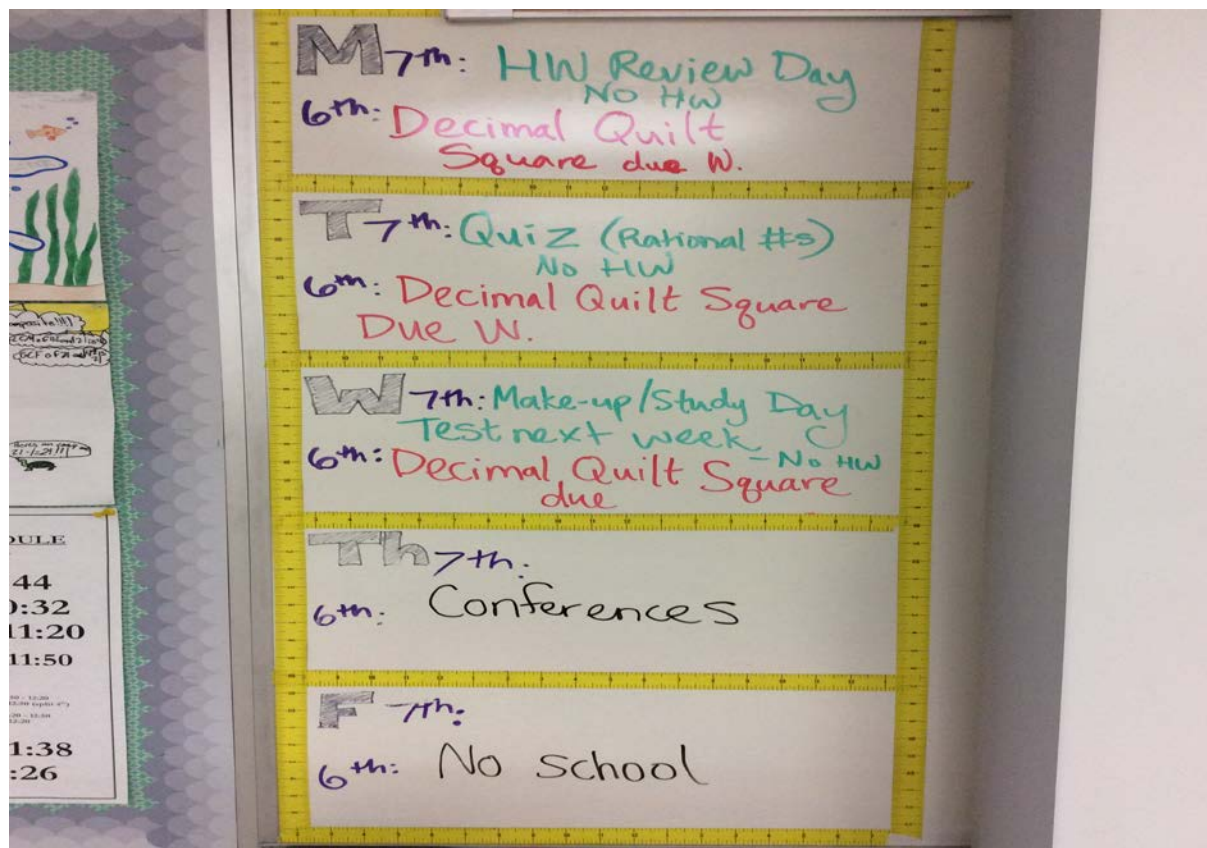 M 7th: HW Review Day
No HW
6th: Decimal Quilt
Square due W.
T 7th: Quiz (Rational #s)
No HW
6th: Decimal Quilt Square
Due W.
W 7th: Make-up/Study Day
Test next week
- No HW
6th: Decimal Quilt Square
due
Th 7th:
6th: Conferences
F 7th:
6th: No school
DULE
44
:32
11:20
11:50
1:38
:26